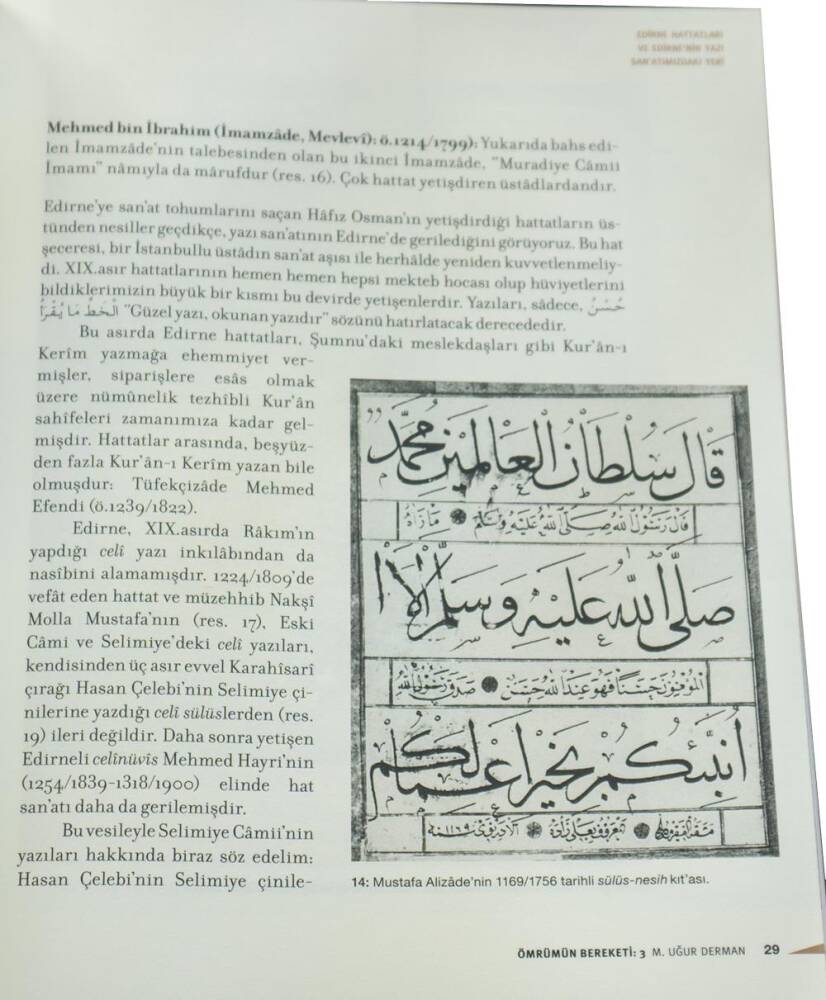 EDİRNE HATTATLARI
VE EDİRNE'NİN YAZI
SAN'ATIMIZDAKİ YERİ
Mehmed bin İbrahim (İmamzâde, Mevlevî): ö.1214/1799): Yukarıda bahs edi-
len İmamzâde'nin talebesinden olan bu ikinci İmamzâde, "Muradiye Câmii
İmamı" nâmıyla da mârufdur (res. 16). Çok hattat yetişdiren üstâdlardandır.
Edirne'ye san'at tohumlarını saçan Hâfız Osman'ın yetişdirdiği hattatların üs-
tünden nesiller geçdikçe, yazı san'atının Edirne'de gerilediğini görüyoruz. Bu hat
şeceresi, bir İstanbullu üstâdın san'at aşısı ile herhâlde yeniden kuvvetlenmeliy-
di. XIX.asır hattatlarının hemen hemen hepsi mekteb hocası olup hüviyetlerini
bildiklerimizin büyük bir kısmı bu devirde yetişenlerdir. Yazıları, sâdece, حُسْنُ
الْخَطِّ مَا يُقْرَأُ "Güzel yazı, okunan yazıdır" sözünü hatırlatacak derecededir.
Bu asırda Edirne hattatları, Şumnu'daki meslekdaşları gibi Kur'ân-ı
Kerîm yazmağa ehemmiyet ver-
mişler, siparişlere esâs olmak
üzere nümûnelik tezhîbli Kur'ân
sahîfeleri zamanımıza kadar gel-
mişdir. Hattatlar arasında, beşyüz-
den fazla Kur'ân-ı Kerîm yazan bile
olmuşdur: Tüfekçizâde Mehmed
Efendi (ö.1239/1822).
Edirne, XIX.asırda Râkım'ın
yapdığı celî yazı inkılâbından da
nasîbini alamamışdır. 1224/1809'de
vefât eden hattat ve müzehhib Nakşî
Molla Mustafa'nın (res. 17), Eski
Câmi ve Selimiye'deki celî yazıları,
kendisinden üç asır evvel Karahîsarî
çırağı Hasan Çelebi'nin Selimiye çi-
nilerine yazdığı celî sülüslerden (res.
19) ileri değildir. Daha sonra yetişen
Edirneli celînüvîs Mehmed Hayri'nin
(1254/1839-1318/1900) elinde hat
san'atı daha da gerilemişdir.
Bu vesileyle Selimiye Câmii'nin
yazıları hakkında biraz söz edelim:
Hasan Çelebi'nin Selimiye çinile-
قَالَ سُلْطَانُ الْعَالَمِينَ مُحَمَّد
قَالَ رَسُولُ اللهِ صَلَّى اللهُ عَلَيْهِ وَسَلَّمَ مَا رَاٰهُ
صَلَّى اللهُ عَلَيْهِ وَسَلَّمَ اَلَا
الْمُؤْمِنُونَ حَسَنًا فَهُوَ عِنْدَ اللهِ حَسَنٌ صَدَقَ رَسُولُ اللهِ
اُنَبِّئُكُمْ بِخَيْرِ اَعْمَالِكُمْ
14: Mustafa Alizâde'nin 1169/1756 tarihli sülüs-nesih kıt'ası.
ÖMRÜMÜN BEREKETİ: 3 M. UĞUR DERMAN 29